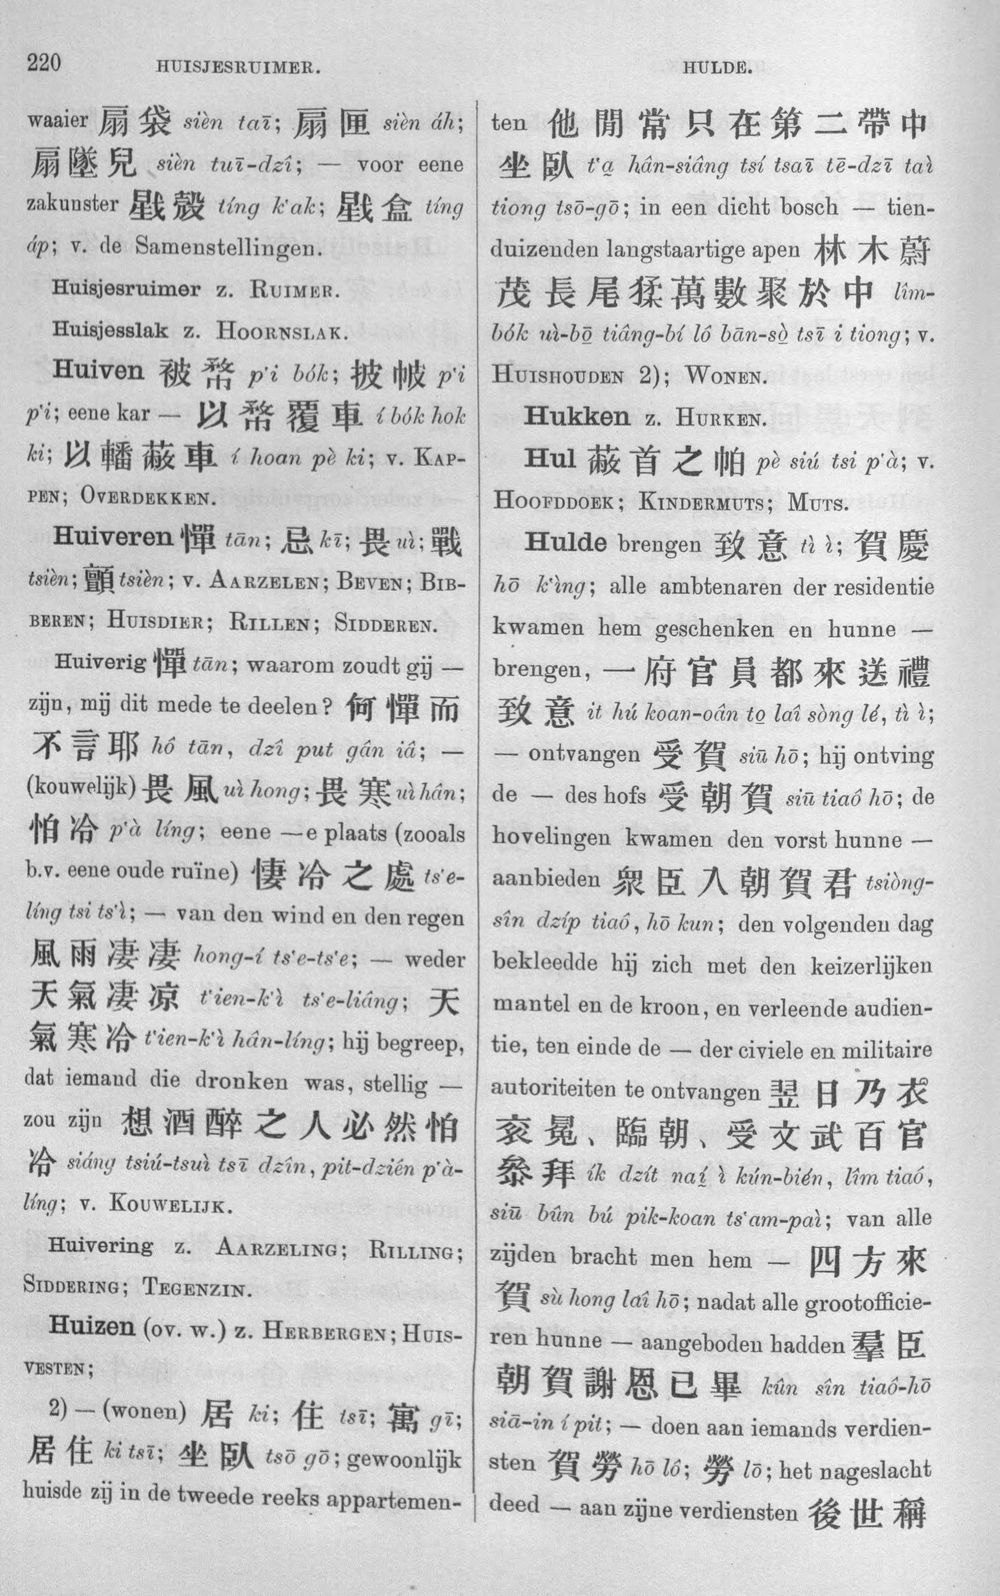 220
HUISJESRUIMER.
HULDE.
waaier 扇袋 sièn taī; 扇匣 sièn áh;
扇墜兒 sièn tuī-dzî; — voor eene
zakunster 戥殼 tíng k‘ak; 戥盒 tíng
áp; v. de Samenstellingen.
Huisjesruimer z. RUIMER.
Huisjesslak z. HOORNSLAK.
Huiven 被帣 p‘i bók; 披帔 p‘i
p‘i; eene kar — 以帣覆車 í bók hok
ki; 以轓蔽車 í hoan pè ki; v. KAP-
PEN; OVERDEKKEN.
Huiveren 憚 tān; 忌 kī; 畏 uì; 戰
tsièn; 顫 tsièn; v. AARZELEN; BEVEN; BIB-
BEREN; HUISDIER; RILLEN; SIDDEREN.
Huiverig 憚 tān; waarom zoudt gij —
zijn, mij dit mede te deelen? 何憚而
不言耶 hô tān, dzî put gân iâ; —
(kouwelijk) 畏風 uì hong; 畏寒 uì hân;
怕冷 p‘à líng; eene —e plaats (zooals
b.v. eene oude ruïne) 悽冷之處 ts‘e-
líng tsi ts‘ì; — van den wind en den regen
風雨凄凄 hong-í ts‘e-ts‘e; — weder
天氣凄凉 t‘ien-k‘ì ts‘e-liâng; 天
氣寒冷 t‘ien-k‘ì hân-líng; hij begreep,
dat iemand die dronken was, stellig —
zou zijn 想酒醉之人必然怕
冷 siáng tsiú-tsuì tsī dzîn, pit-dzién p‘à-
líng; v. KOUWELIJK.
Huivering z. AARZELING; RILLING;
SIDDERING; TEGENZIN.
Huizen (ov. w.) z. HERBERGEN; HUIS-
VESTEN;
2) — (wonen) 居 ki; 住 tsī; 寓 gī;
居住 ki tsī; 坐臥 tsō gō; gewoonlijk
huisde zij in de tweede reeks appartemen-
ten 他閒常只在第二帶中
坐臥 t‘a hán-siâng tsí tsaī tē-dzī taì
tiong tsō-gō; in een dicht bosch — tien-
duizenden langstaartige apen 林木蔚
茂長尾猱萬數聚於中 lîm-
bók uì-bō tiâng-bí lô bān-sò tsī i tiong; v.
HUISHOUDEN 2); WONEN.
Hukken z. HURKEN.
Hul 蔽首之帕 pè siú tsi p‘à; v.
HOOFDDOEK; KINDERMUTS; MUTS.
Hulde brengen 致意 tì ì; 賀慶
hō k‘ìng; alle ambtenaren der residentie
kwamen hem geschenken en hunne —
brengen, 一府官員都來送禮
致意 it hú koan-oân to laî sòng lé, tì ì;
— ontvangen 受賀 siū hō; hij ontving
de — des hofs 受朝賀 siū tiaô hō; de
hovelingen kwamen den vorst hunne —
aanbieden 衆臣入朝賀君 tsiòng-
sîn dzíp tiaô, hō kun; den volgenden dag
bekleedde hij zich met den keizerlijken
mantel en de kroon, en verleende audien-
tie, ten einde de — der civiele en militaire
autoriteiten te ontvangen 翌日乃衣
衮冕、臨朝、受文武百官
叅拜 ík dzít naí ì kún-bién, lîm tiaô,
siū bûn bú pik-koan ts‘am-paì; van alle
zijden bracht men hem — 四方來
賀 sù hong laî hō; nadat alle grootofficie-
ren hunne — aangeboden hadden 羣臣
朝賀謝恩已畢 kûn sîn tiaô-hō
siā-in í pit; — doen aan iemands verdien-
sten 賀勞 hō lô; 勞 lō; het nageslacht
deed — aan zijne verdiensten 後世稱